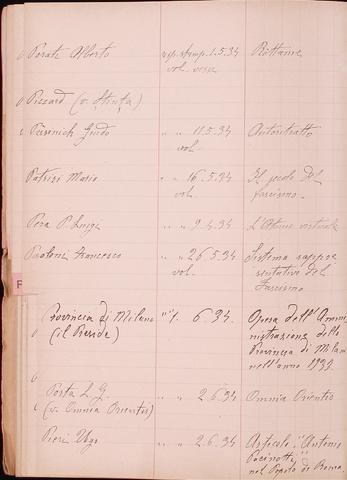 Porati Alberto risp. stamp. 1.5.34 Rottame
vol. versi
Pizzard (v. Stinfa)
Peresnich Guido " " 11.5.34 Autoritratto
vol.
Patrizi Mario " " 16.5.34 Il secolo del
vol. fascismo.
Pera P. Luigi " " 9.4.34
Paoloni Francesco " " 26.5.34 Sistema rappre
vol. sentativo del
Fascismo
P
Provincia di Milano " " 1. 6.34. Opera dell'Ammi
(il Preside) nistrazione della
Provincia di Milano
nell'anno 1933.
Porta L. G. " " 2.6.34 Omnia Orientis
(v. Omnia Orientis)
Pieri Ugo " " 2.6.34 Articolo "Antonio
Pacinotti"
nel Popolo di Roma